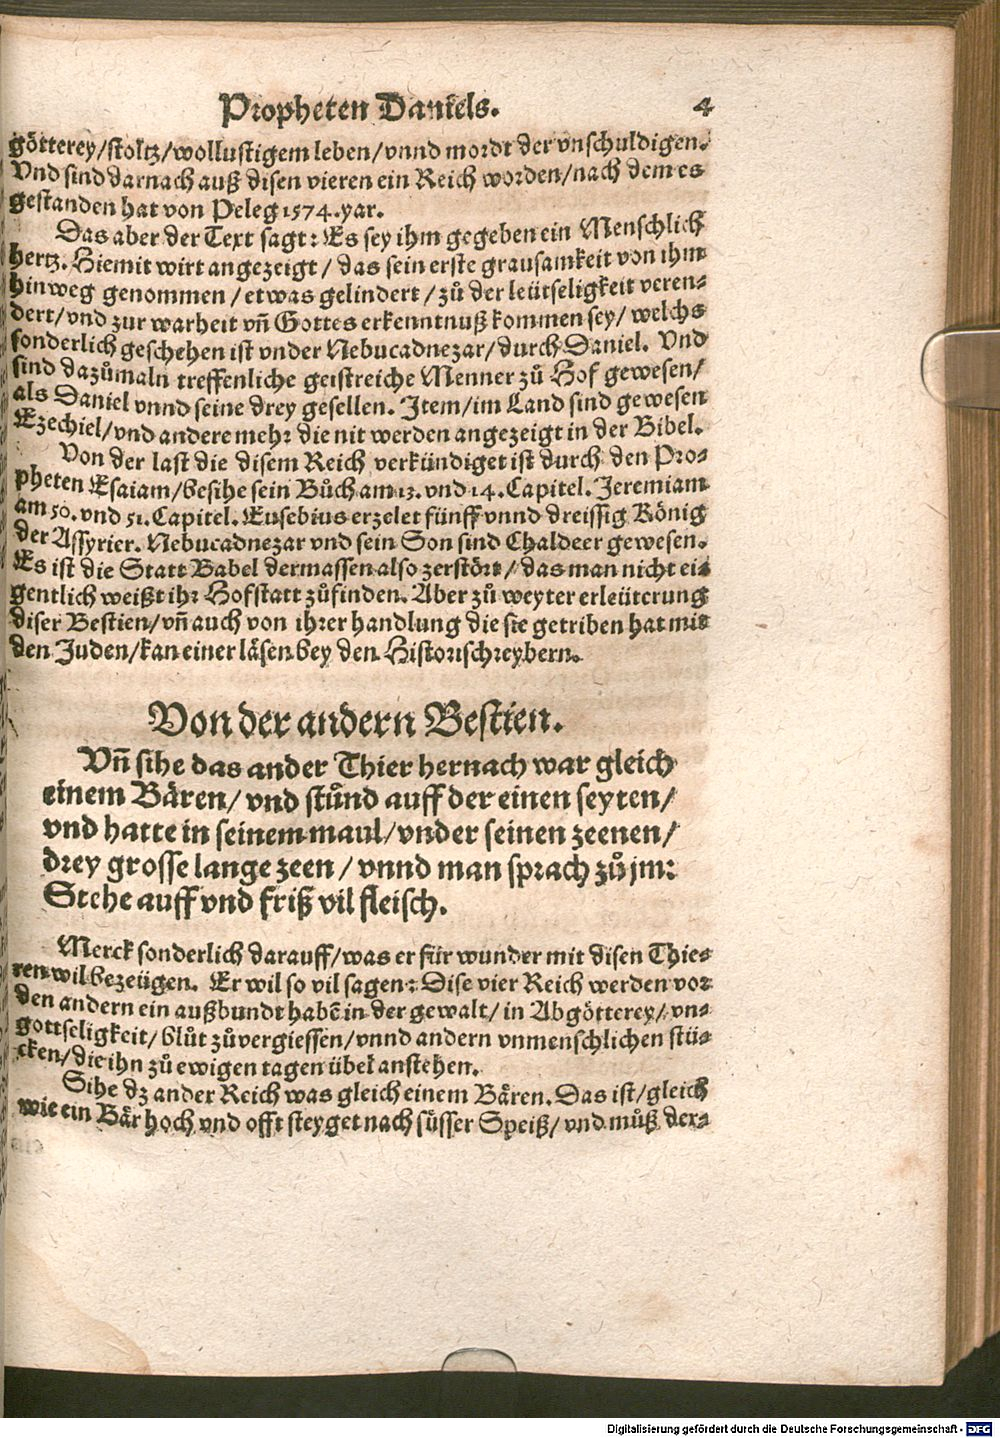 Propheten Daniels. 4
götterey/stoltz/wollustigem leben/vnnd mordt der vnschuldigen.
Vnd sind darnach auß disen vieren ein Reich worden/nach dem es
gestanden hat von Peleg 1574. yar.
Das aber der Text sagt: Es sey ihm gegeben ein Menschlich
hertz. Hiemit wirt angezeigt / das sein erste grausamkeit von ihm
hinweg genommen / etwas gelindert / zů der leütseligkeit veren-
dert/vnd zur warheit vñ Gottes erkenntnuß kommen sey/ welchs
sonderlich geschehen ist vnder Nebucadnezar/durch Daniel. Vnd
sind dazůmaln treffenliche geistreiche Menner zů Hof gewesen/
als Daniel vnnd seine drey gesellen. Item/im Land sind gewesen
Ezechiel/vnd andere mehr die nit werden angezeigt in der Bibel.
Von der last die disem Reich verkündiget ist durch den Pro-
pheten Esaiam/besihe sein Bůch am 13. vnd 14. Capitel. Jeremiam
am 50. vnd 51. Capitel. Eusebius erzelet fünff vnnd dreissig König
der Assyrier. Nebucadnezar vnd sein Son sind Chaldeer gewesen.
Es ist die Statt Babel dermassen also zerstört/ das man nicht ei-
gentlich weißt ihr Hofstatt zůfinden. Aber zů weyter erleüterung
diser Bestien/vñ auch von ihrer handlung die sie getriben hat mit
den Juden/kan einer läsen bey den Historischreybern.
Von der andern Bestien.
Vñ sihe das ander Thier hernach war gleich
einem Bären/ vnd stůnd auff der einen seyten/
vnd hatte in seinem maul/vnder seinen zeenen/
drey grosse lange zeen / vnnd man sprach zů jm:
Stehe auff vnd friß vil fleisch.
Merck sonderlich darauff/was er für wunder mit disen Thie-
ren wil bezeügen. Er wil so vil sagen: Dise vier Reich werden vor
den andern ein außbundt habē in der gewalt/ in Abgötterey/ vn-
gottseligkeit/ blůt zůvergiessen/vnnd andern vnmenschlichen stü-
cken/die ihn zů ewigen tagen übel anstehen.
Sihe dz ander Reich was gleich einem Bären. Das ist/gleich
wie ein Bär hoch vnd offt steyget nach süsser Speiß/ vnd můß der-
Digitalisierung gefördert durch die Deutsche Forschungsgemeinschaft - DFG